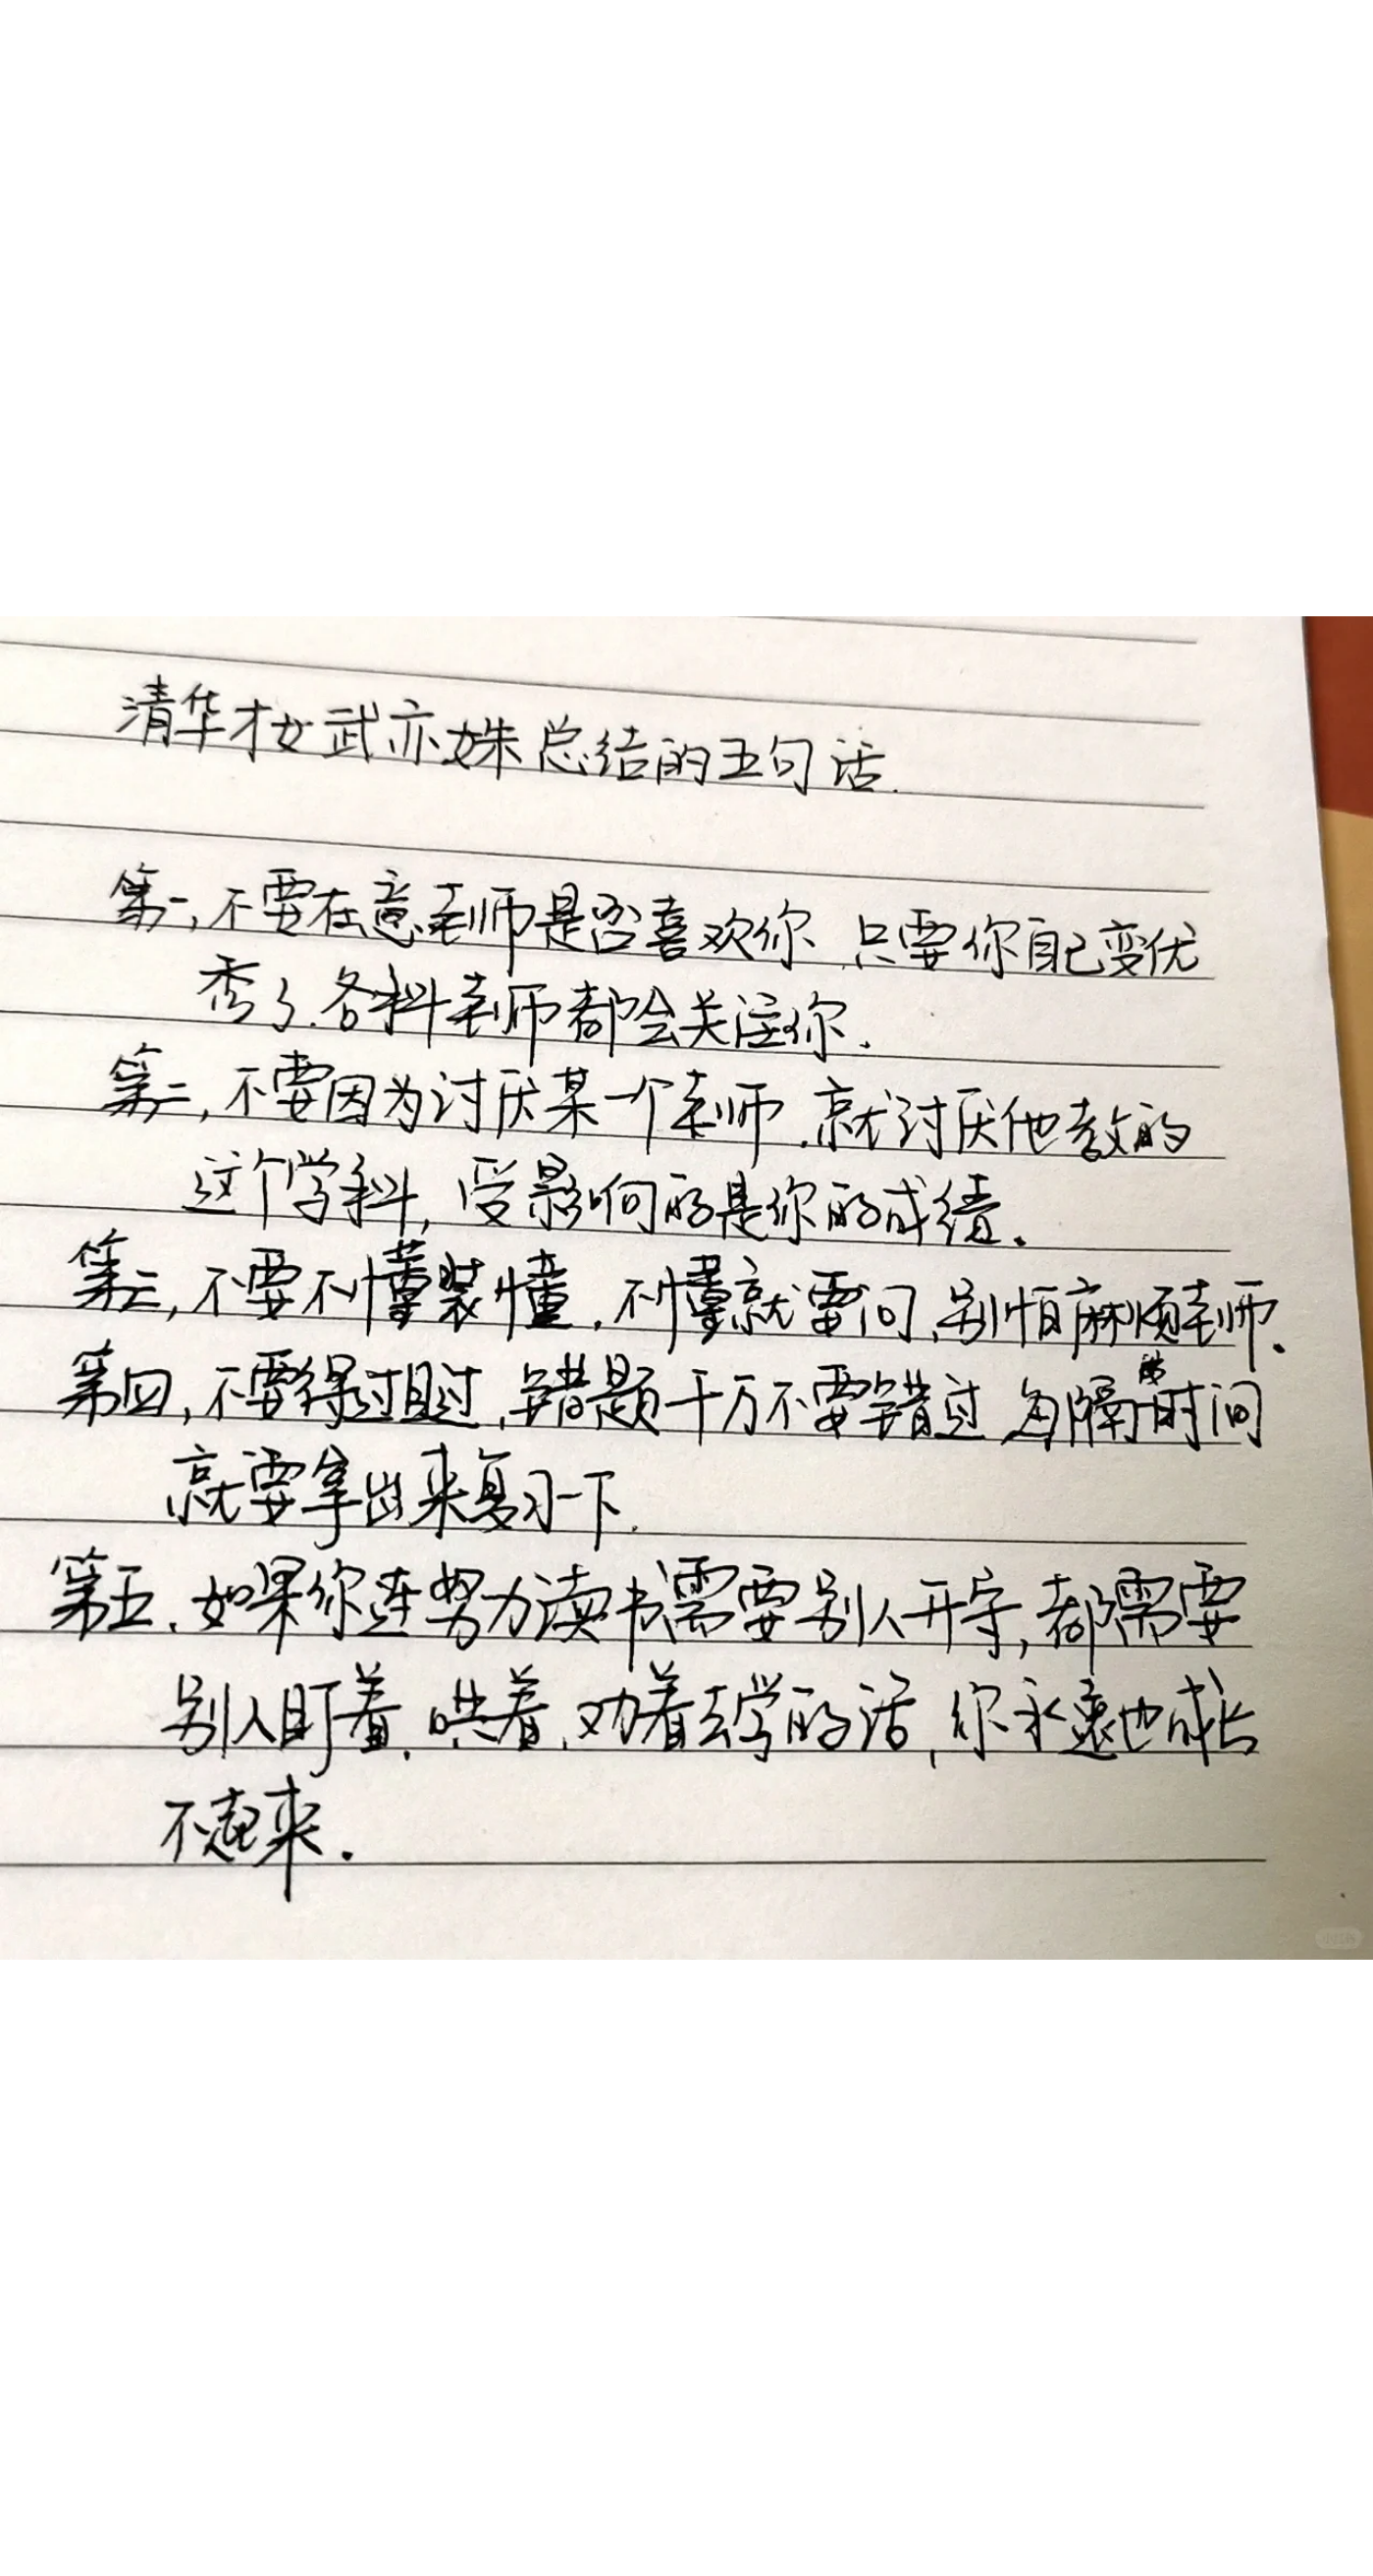 清华才女武亦姝总结的五句话.
第一,不要在意老师是否喜欢你.只要你自己变优
秀了.各科老师都会关注你.
第二,不要因为讨厌某一个老师.就讨厌他教的
这个学科,受影响的是你的成绩.
第三,不要不懂装懂.不懂就要问.别怕麻烦老师.
第四,不要得过且过,错题千万不要错过.每隔一段时间
就要拿出来复习一下.
第五.如果你连努力读书需要别人开导,都需要
别人盯着.哄着.劝着去学的话,你永远也成长
不起来.